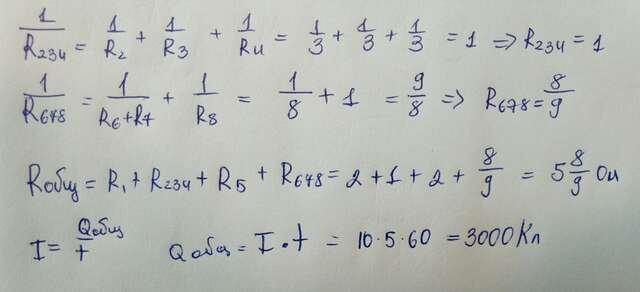 1/R234 = 1/R2 + 1/R3 + 1/R4 = 1/3 + 1/3 + 1/3 = 1 => R234 = 1
1/R678 = 1/(R6+R7) + 1/R8 = 1/8 + 1 = 9/8 => R678 = 8/9
Rобщ = R1 + R234 + R5 + R678 = 2 + 1 + 2 + 8/9 = 5 8/9 Ом
I = Qобщ/t Qобщ = I · t = 10 · 5 · 60 = 3000 Кл